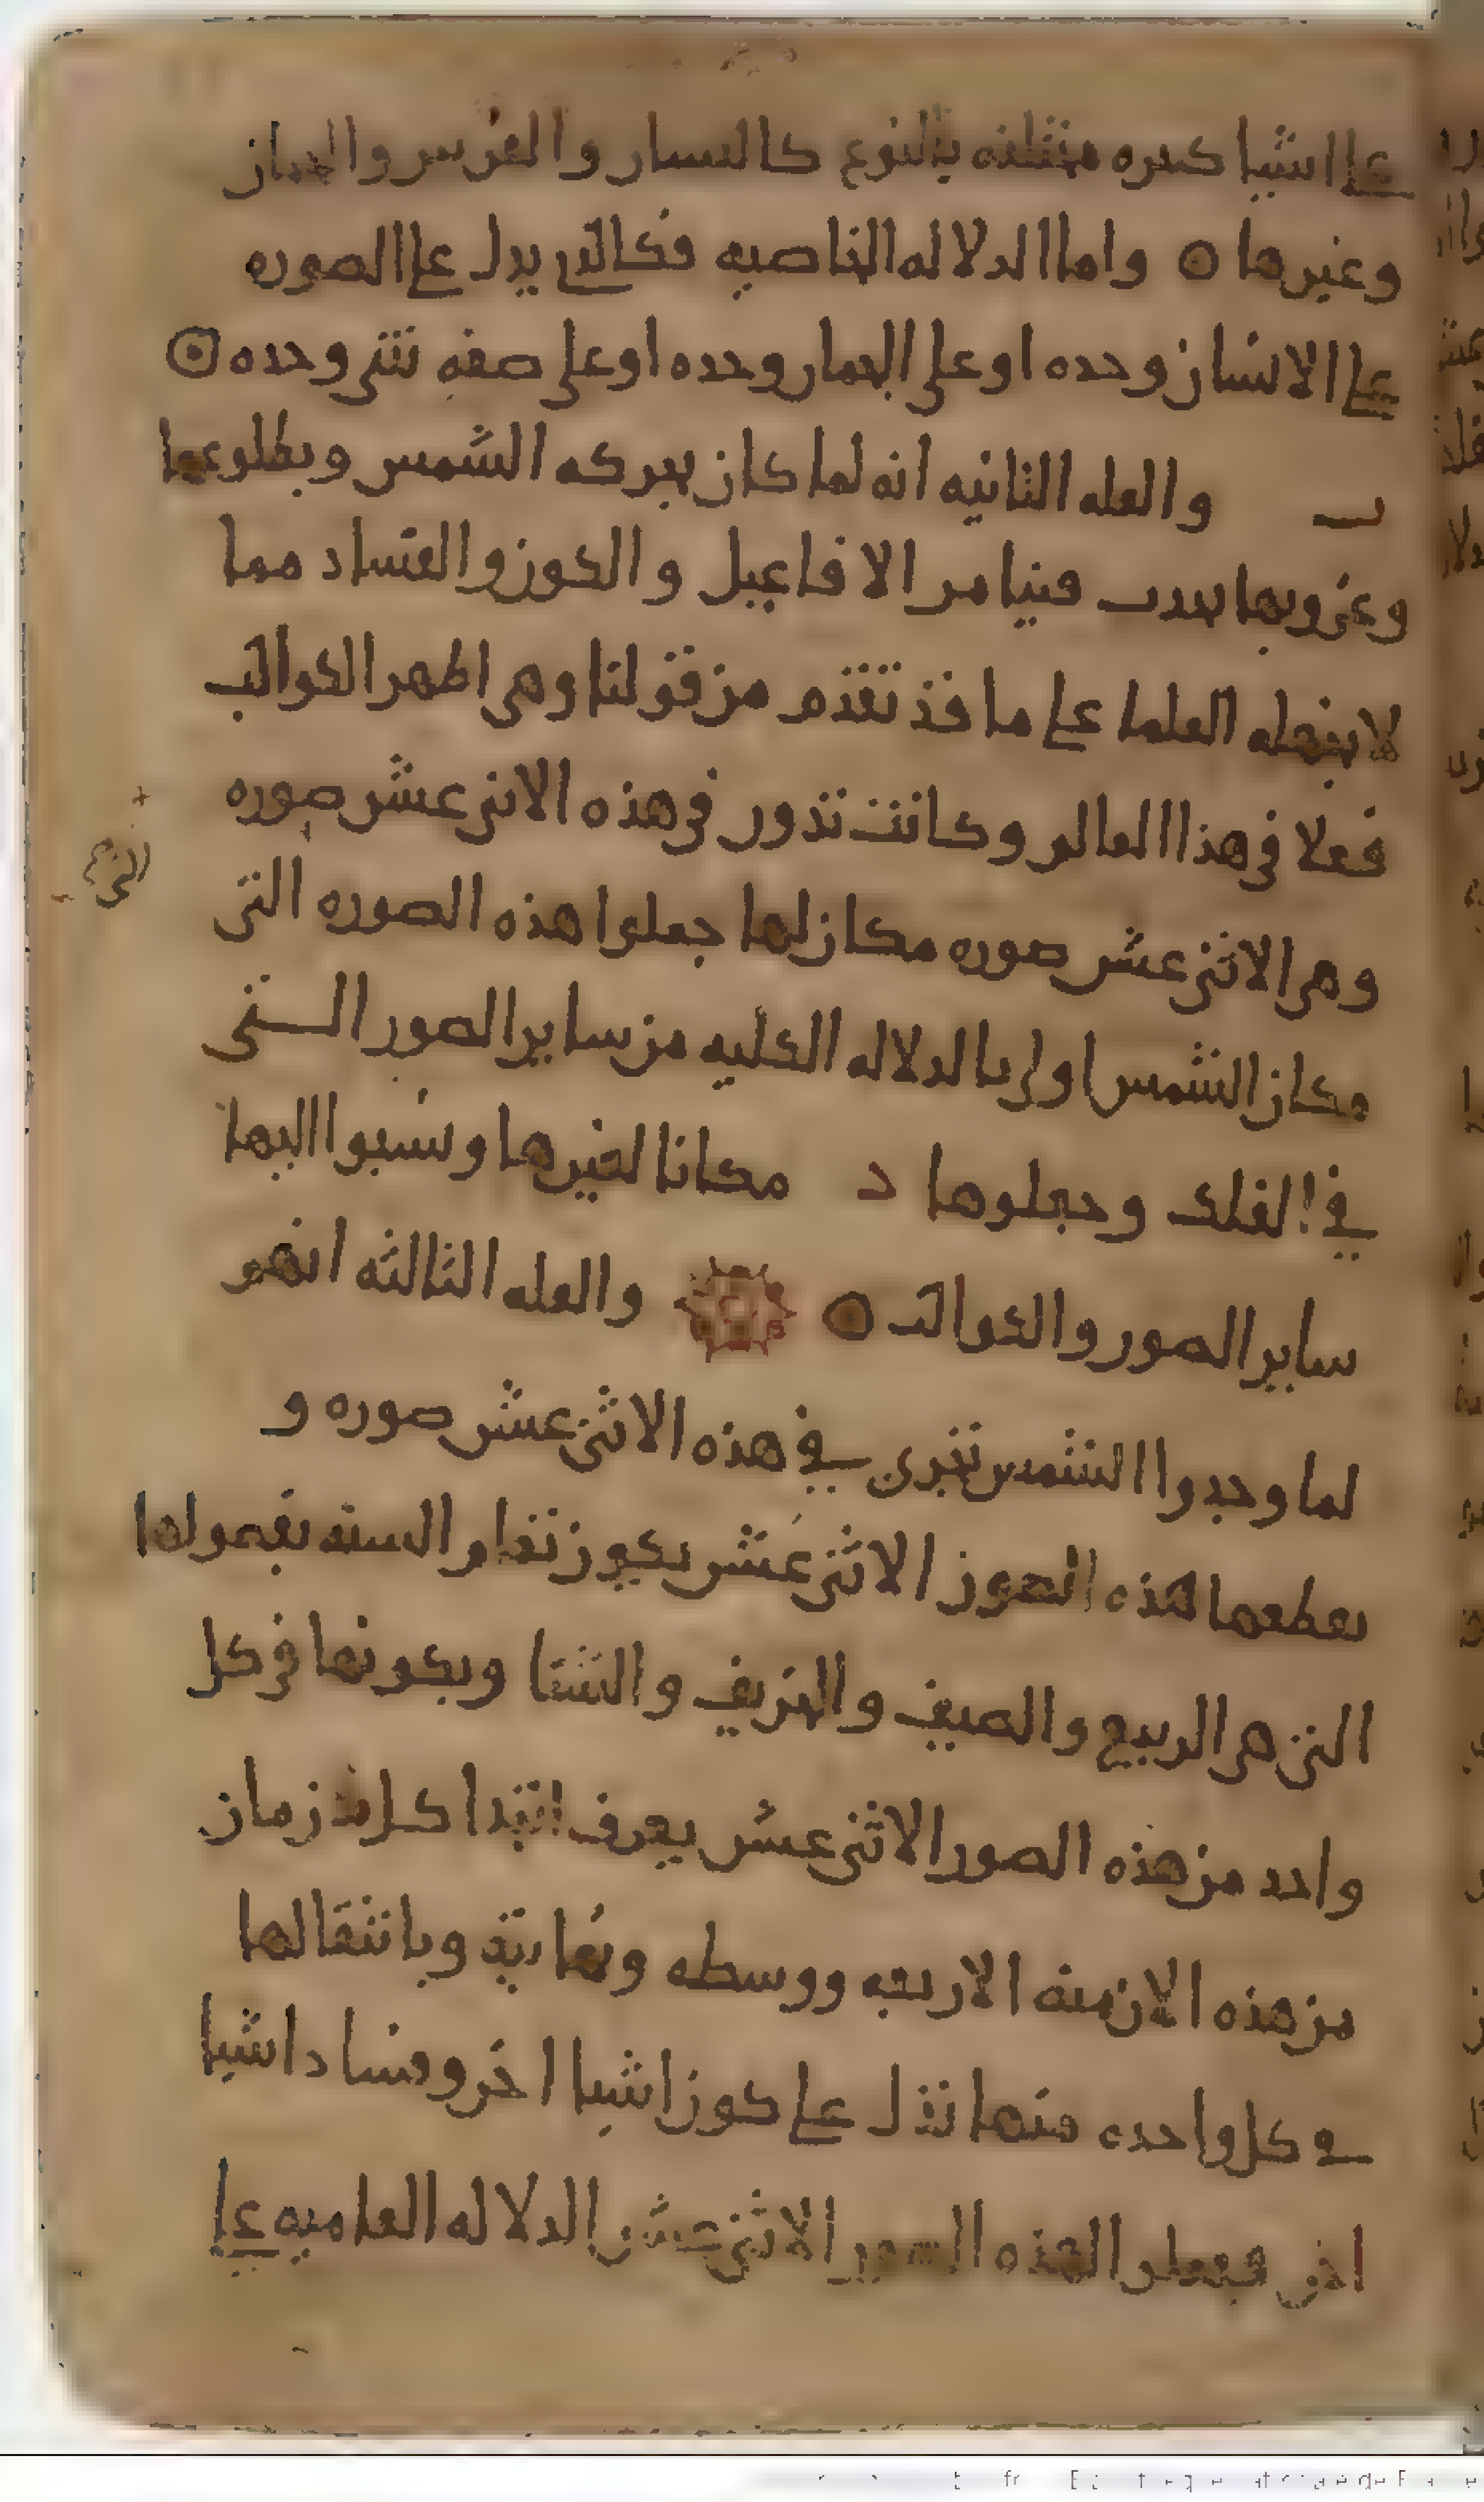 على اشيا كثيره مختلفه بالنوع كالانسان والفرس والحمار
وغيرها ۝ واما الدلاله الخاصيه فكالتى يدل على الصوره
على الانسان وحده او على الحمار وحده او على صفه شى وحده ۝
ب والعله الثانيه انه لما كان بحركه الشمس وبطلوعها
وغروبها يحدث فينا من الافاعيل والكون والفساد مما
لا يجهله العلما على ما قد تقدم من قولنا وهى اظهر الكواكب
فعلا فى هذا العالم وكانت تدور فى هذه الاثنى عشر صوره
وهى الاثنى عشر صوره مكان لها جعلوا هذه الصوره التى
مكان الشمس اولى بالدلاله الكليه من ساير الصور التى
فى الفلك وجعلوها د مكانا لغيرها ونسبوا اليها
ساير الصور والكواكب ۝ والعله الثالثه انهم
لما وجدوا الشمس تجرى فى هذه الاثنى عشر صوره و
بقطعها هذه الصور الاثنى عشر يكون تمام السنه بفصولها
التى هى الربيع والصيف والخريف والشتا وبكونها فى كل
واحد من هذه الصور الاثنى عشر يعرف ابتدا كل زمان
من هذه الازمنه الاربعه ووسطه ونهايته وبانتقالها
فى كل واحده منها تدل على كون اشيا اخر وفساد اشيا
اخر فجعلوا لهذه الصور الاثنى عشر الدلاله العاميه على